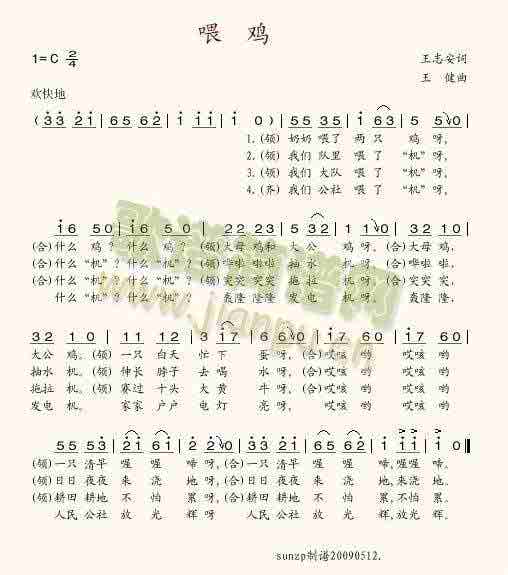 喂 鸡
1=C 2/4
王志安词
王 健曲
欢快地
(3̇3̇ 2̇1̇ | 65 62̇ | 1̇1̇ 1̇1̇ | 1̇ 0) | 55 35 | 1̇ 63 | 5 5 0 |
1.(领)奶奶喂了 两只 鸡 呀,
2.(领)我们队里 喂了 “机”呀,
3.(领)我们大队 喂了 “机”呀,
4.(齐)我们公社 喂了 “机”呀,
1̇6 50 | 1̇6 50 | 22 23 | 5 32 | 1 1 0 | 22 23 |
(合)什么 鸡?什么 鸡?(领)大母鸡和 大公 鸡呀,(合)大母鸡,
(合)什么“机”?什么“机”?(领)哗啦啦啦 抽水 机呀,(合)哗啦啦,
(合)什么“机”?什么“机”?(领)突突突突 拖拉 机呀,(合)突突突,
什么“机”?什么“机”? 轰隆隆隆 发电 机呀, 轰隆隆,
32 10 | 11 12 | 3 2 | 5 5 0 | 1̇7 60 | 1̇7 60 |
大公 鸡。(领)一只白天 忙下 蛋呀,(合)哎咳 哟 哎咳 哟
抽水 机。(领)伸长脖子 去喝 水呀,(合)哎咳 哟 哎咳 哟
拖拉 机。(领)赛过十头 大黄 牛呀,(合)哎咳 哟 哎咳 哟
发电 机。 家家户户 电灯 亮呀, 哎咳 哟 哎咳 哟
55 53 | 2̇1̇ 61̇ | 2̇ 2̇ 0 | 55 53 | 2̇1̇ 61̇ | 1̇ 1̇1̇ | 1̇ 0 ‖
(领)一只清早 喔喔 啼呀,(合)一只清早 喔喔 啼,喔喔 啼。
(领)日日夜夜 来浇 地呀,(合)日日夜夜 来浇 地,来浇 地。
(领)耕田耕地 不怕 累呀,(合)耕田耕地 不怕 累,不怕 累。
人民公社 放光 辉呀 人民公社 放光 辉,放光 辉。
sunzp制谱20090512.